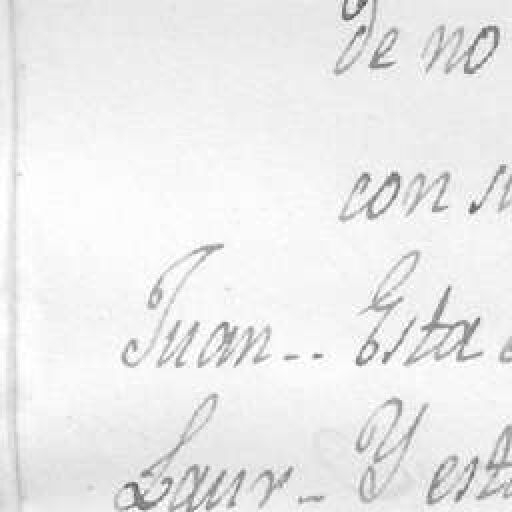 de no
con su
Juan-.. Esta
Laur- Y est